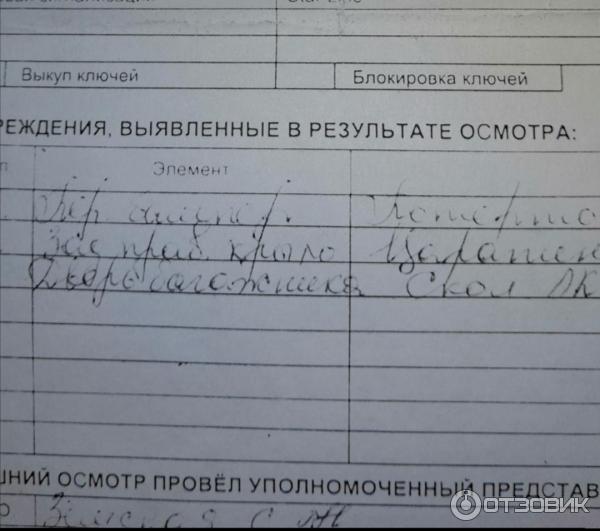 Star Line
Выкуп ключей Блокировка ключей
РЕЖДЕНИЯ, ВЫЯВЛЕННЫЕ В РЕЗУЛЬТАТЕ ОСМОТРА:
Элемент
Пер бампер. Потерто
Зад прав крыло Царапин
Дверь багажника Скол ЛК
ШНИЙ ОСМОТР ПРОВЁЛ УПОЛНОМОЧЕННЫЙ ПРЕДСТАВ
ОТЗОВИК